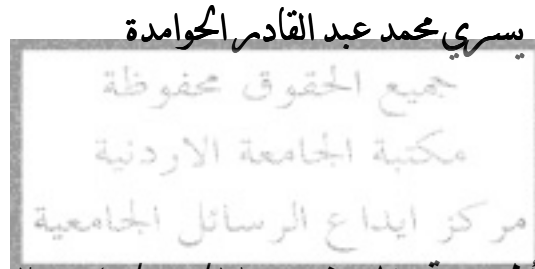 يسري محمد عبد القادر الحوامدة
جميع الحقوق محفوظة
مكتبة الجامعة الاردنية
مركز ايداع الرسائل الجامعية